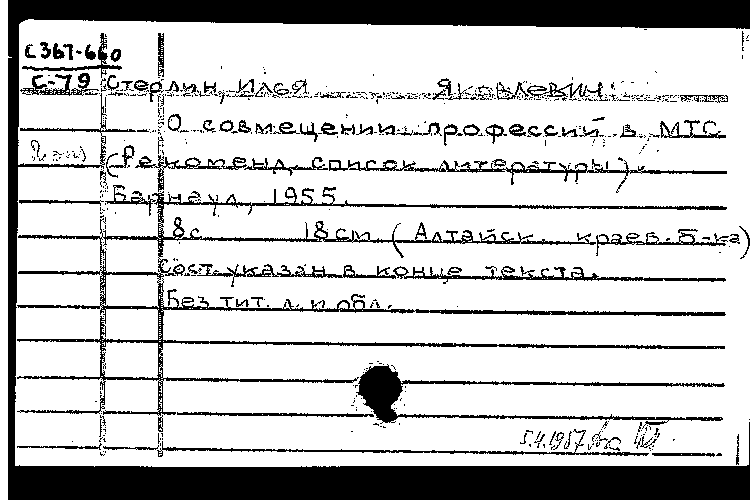 С367-660
С-79 Стерлин, Илья Яковлевич.
О совмещении профессий в МТС.
(Рекоменд. список литературы).
Барнаул, 1955.
8с 18см (Алтайск. краев. б-ка)
Сост. указан в конце текста.
Без тит. л. и обл.